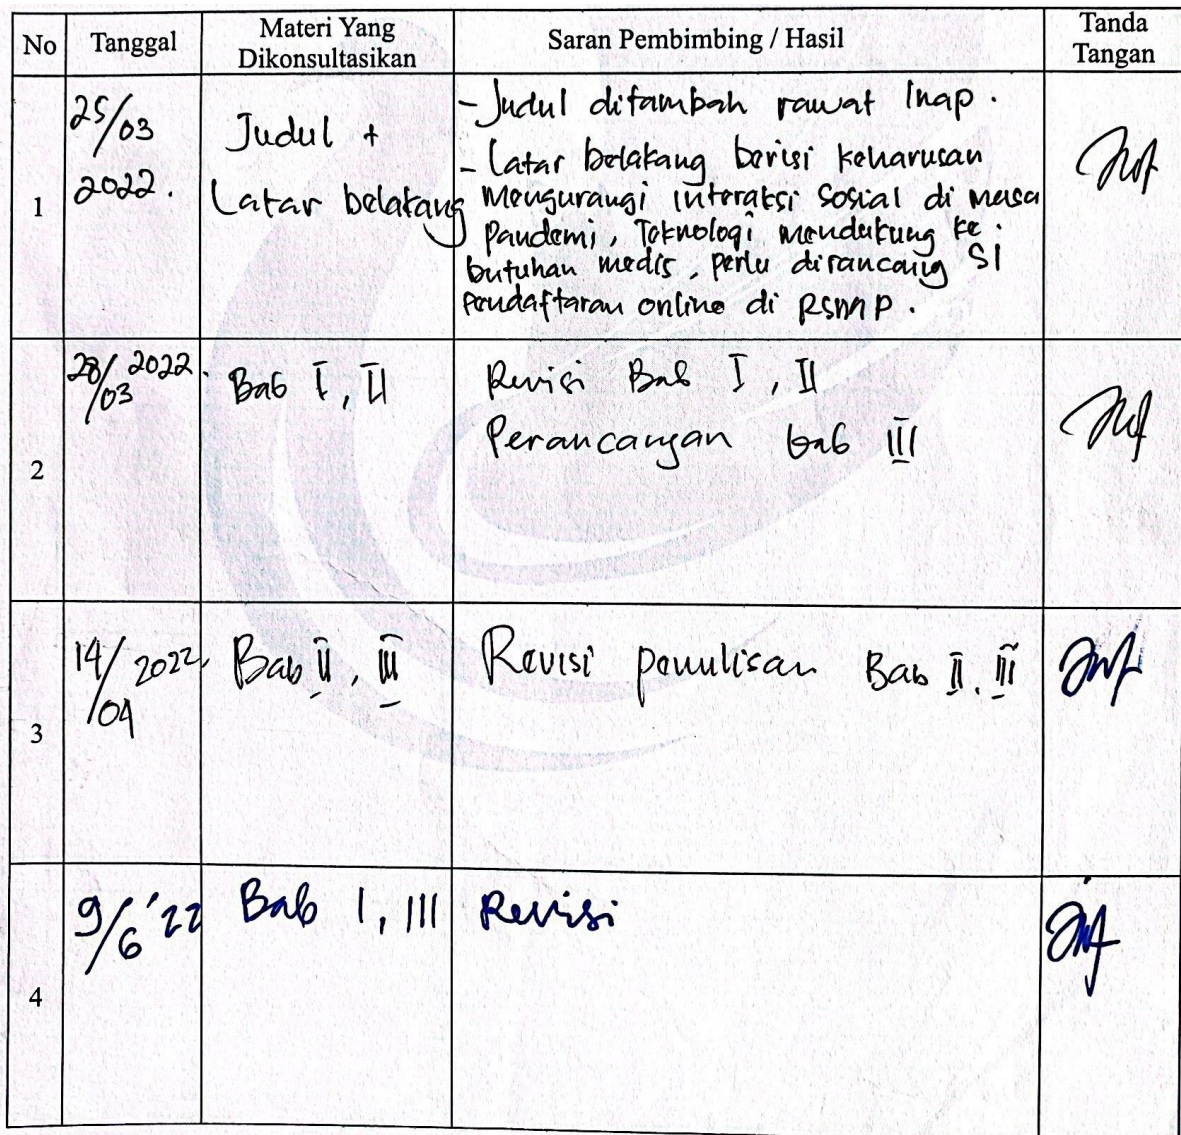 No Tanggal Materi Yang Dikonsultasikan Saran Pembimbing / Hasil Tanda Tangan
1
25/03
2022.
Judul +
Latar belakang
- Judul ditambah rawat Inap.
- Latar belakang berisi keharusan
mengurangi interaksi sosial di masa
Pandemi, Teknologi mendukung ke-
butuhan medis, perlu dirancang SI
Pendaftaran online di RSMP.
2
28/03 2022.
Bab I, II
Revisi Bab I, II
Perancangan bab III
3
14/04 2022,
Bab II, III
Revisi penulisan Bab II, III
4
9/6 '22
Bab I, III
Revisi